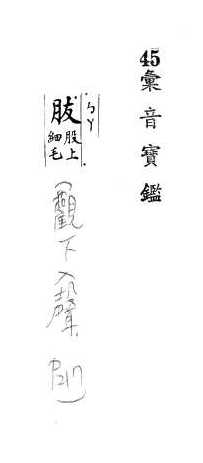 45彙音寶鑑
ㄅㄚ
胈股上細毛
(觀下入聲 P217)